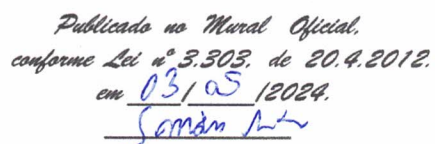 Publicado no Mural Oficial,
conforme Lei nº 3.303, de 20.4.2012.
em 03/05/2024.